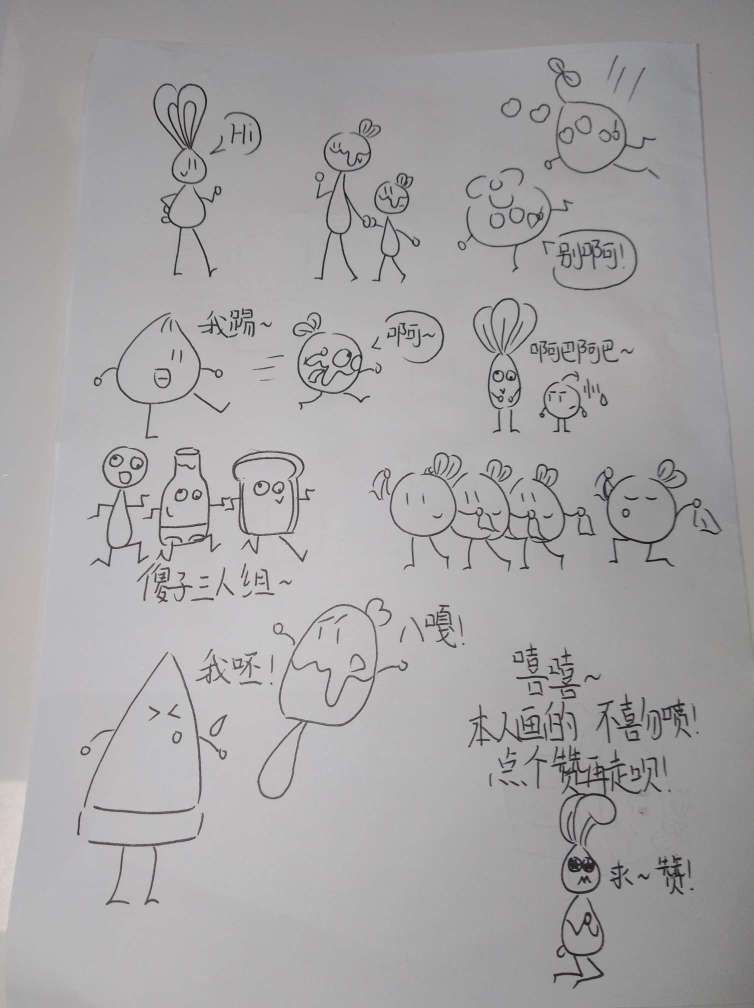 Hi
别啊!
我踢~
啊~
啊巴啊巴~
傻子三人组~
我呸!
八嘎!
嘻嘻~
本人画的 不喜勿喷!
点个赞再走呗!
求~赞!